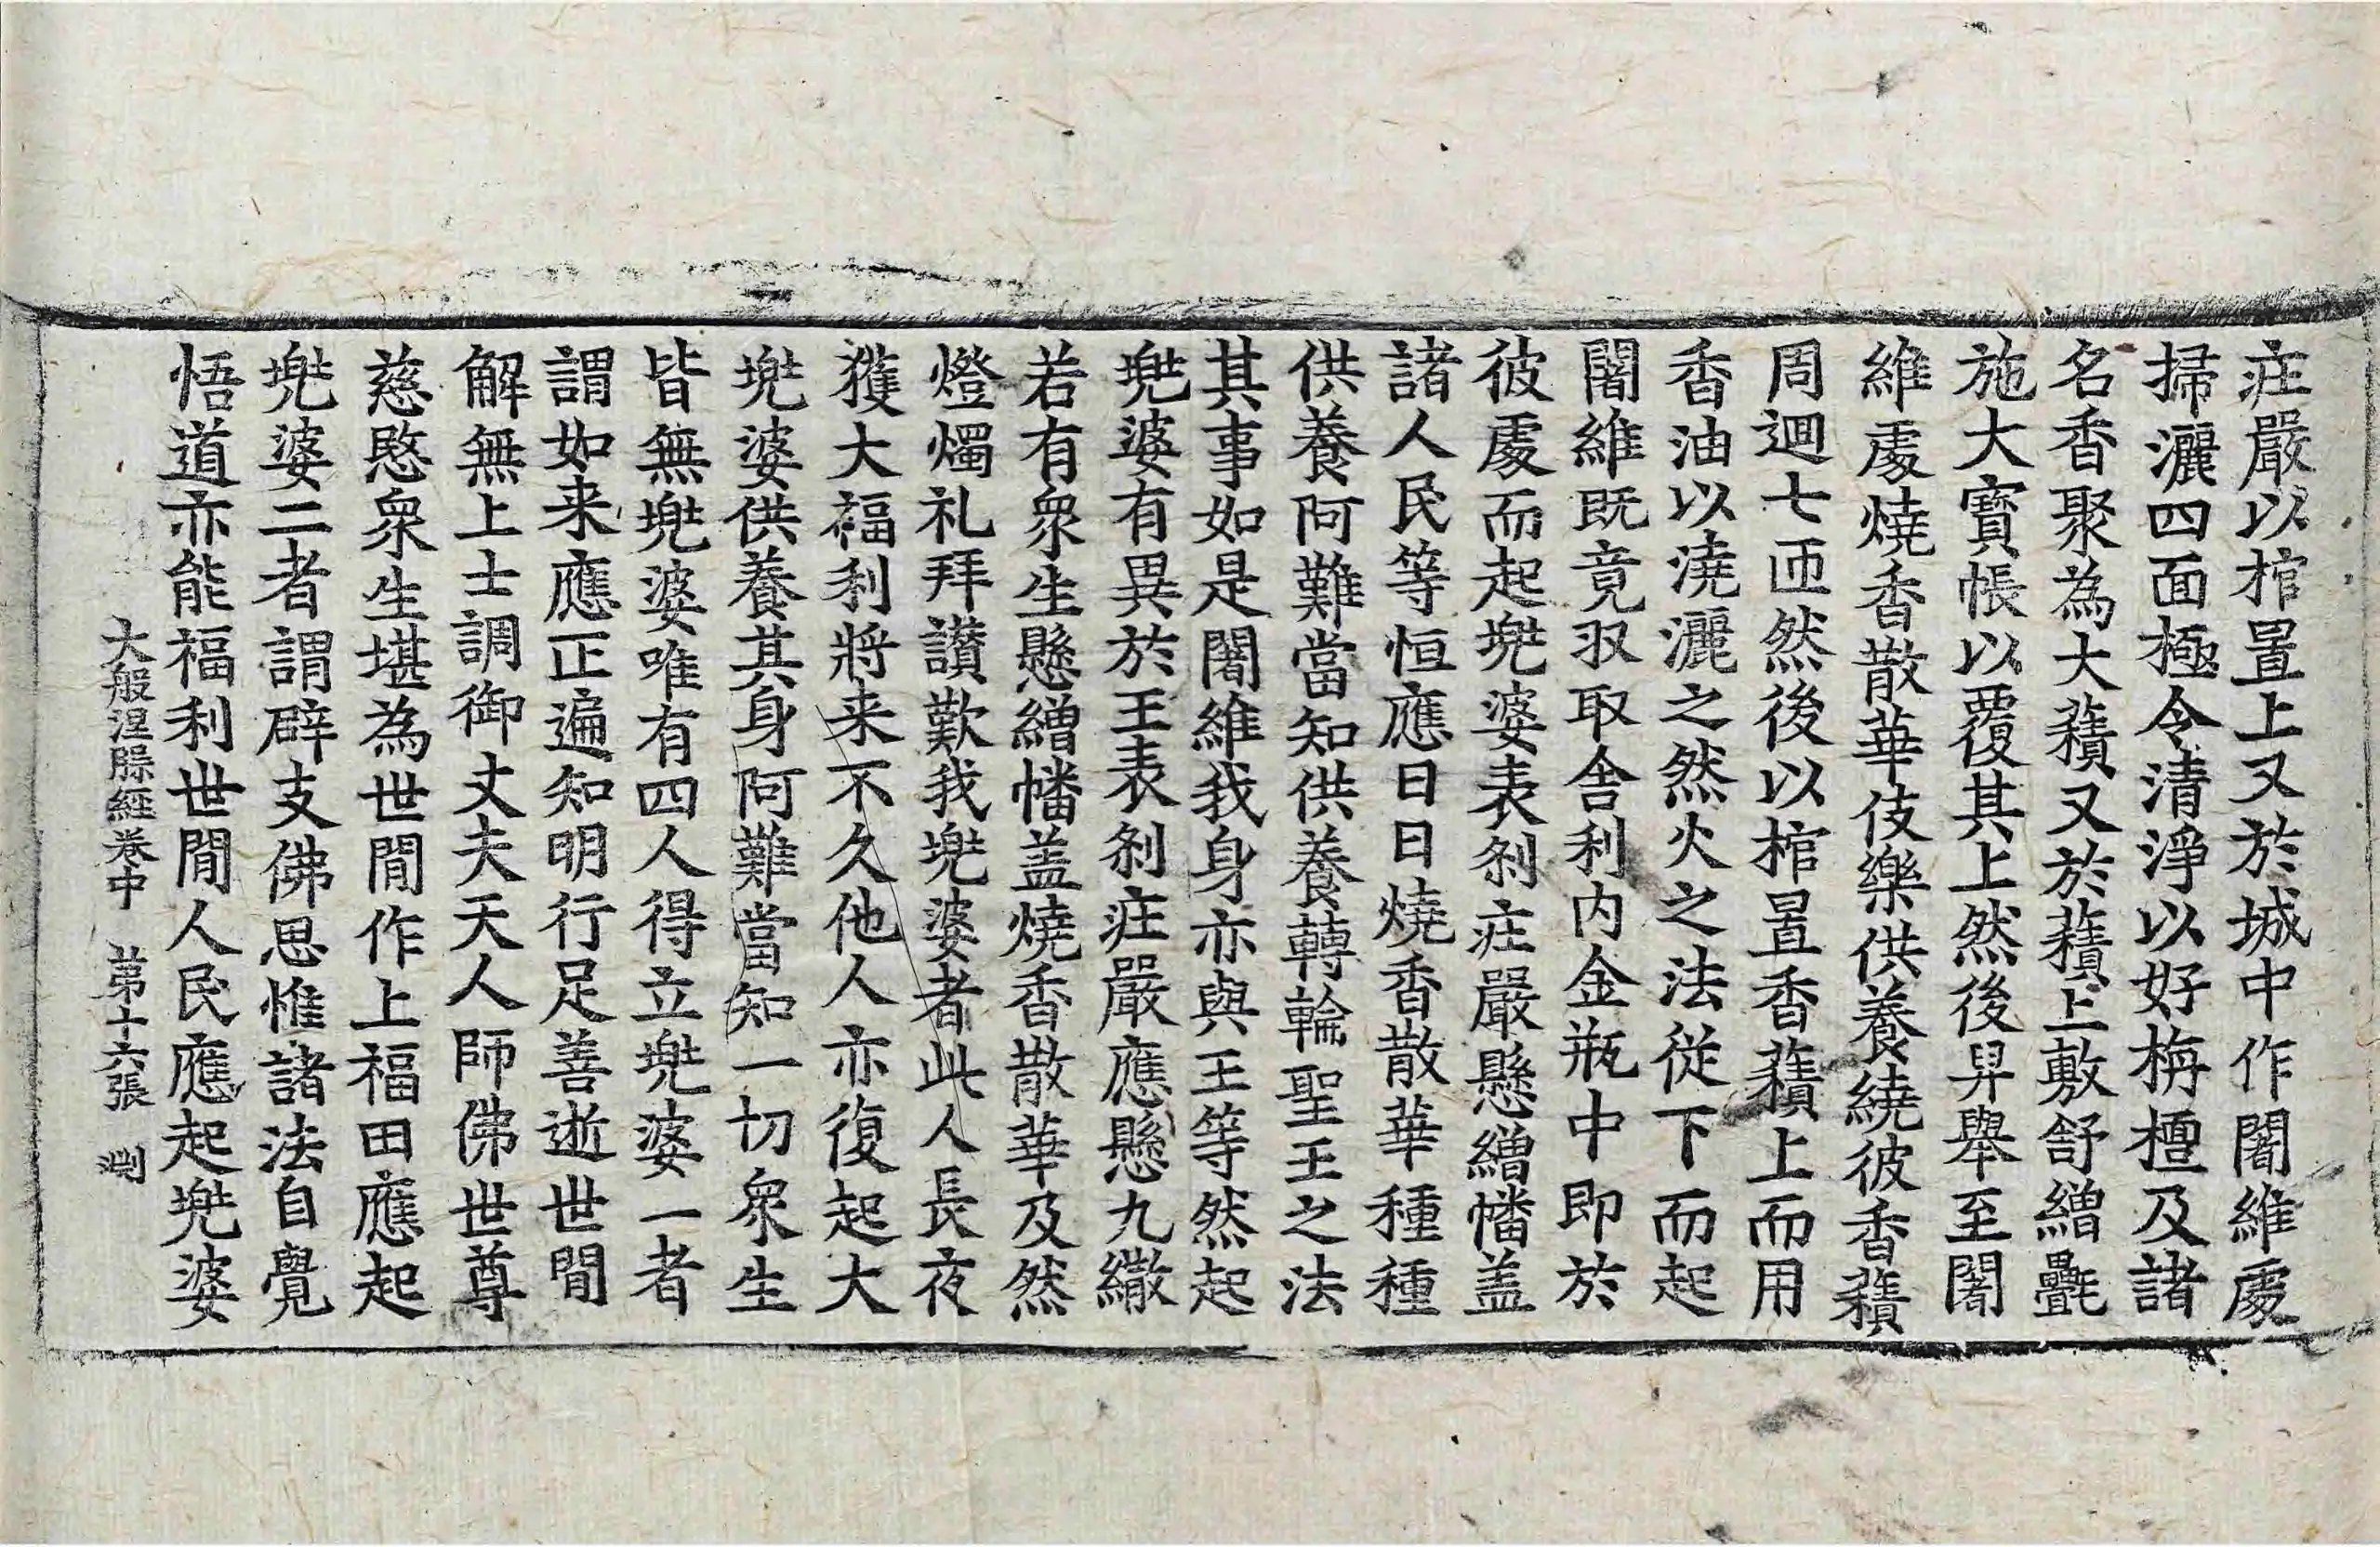 庄嚴以棺置上又於城中作闍維處
掃灑四面極令清淨以好栴檀及諸
名香聚為大𧂐又於𧂐上敷舒繒㲲
施大寶帳以覆其上然後舁舉至闍
維處燒香散華伎樂供養繞彼香𧂐
周迴七匝然後以棺置香𧂐上而用
香油以澆灑之然火之法從下而起
闍維既竟収取舍利內金瓶中即於
彼處而起兠婆表剎庄嚴懸繒幡盖
諸人民等恒應日日燒香散華種種
供養阿難當知供養轉輪聖王之法
其事如是闍維我身亦與王等然起
兠婆有異於王表剎庄嚴應懸九繖
若有衆生懸繒幡盖燒香散華及然
燈燭礼拜讃歎我兠婆者此人長夜
獲大福利將来不久他人亦復起大
兠婆供養其身阿難當知一切衆生
皆無兠婆唯有四人得立兠婆一者
謂如来應正遍知明行足善逝世間
解無上士調御丈夫天人師佛世尊
慈愍衆生堪為世間作上福田應起
兠婆二者謂辟支佛思惟諸法自覺
悟道亦能福利世間人民應起兠婆
大般涅槃經卷中 第十六張